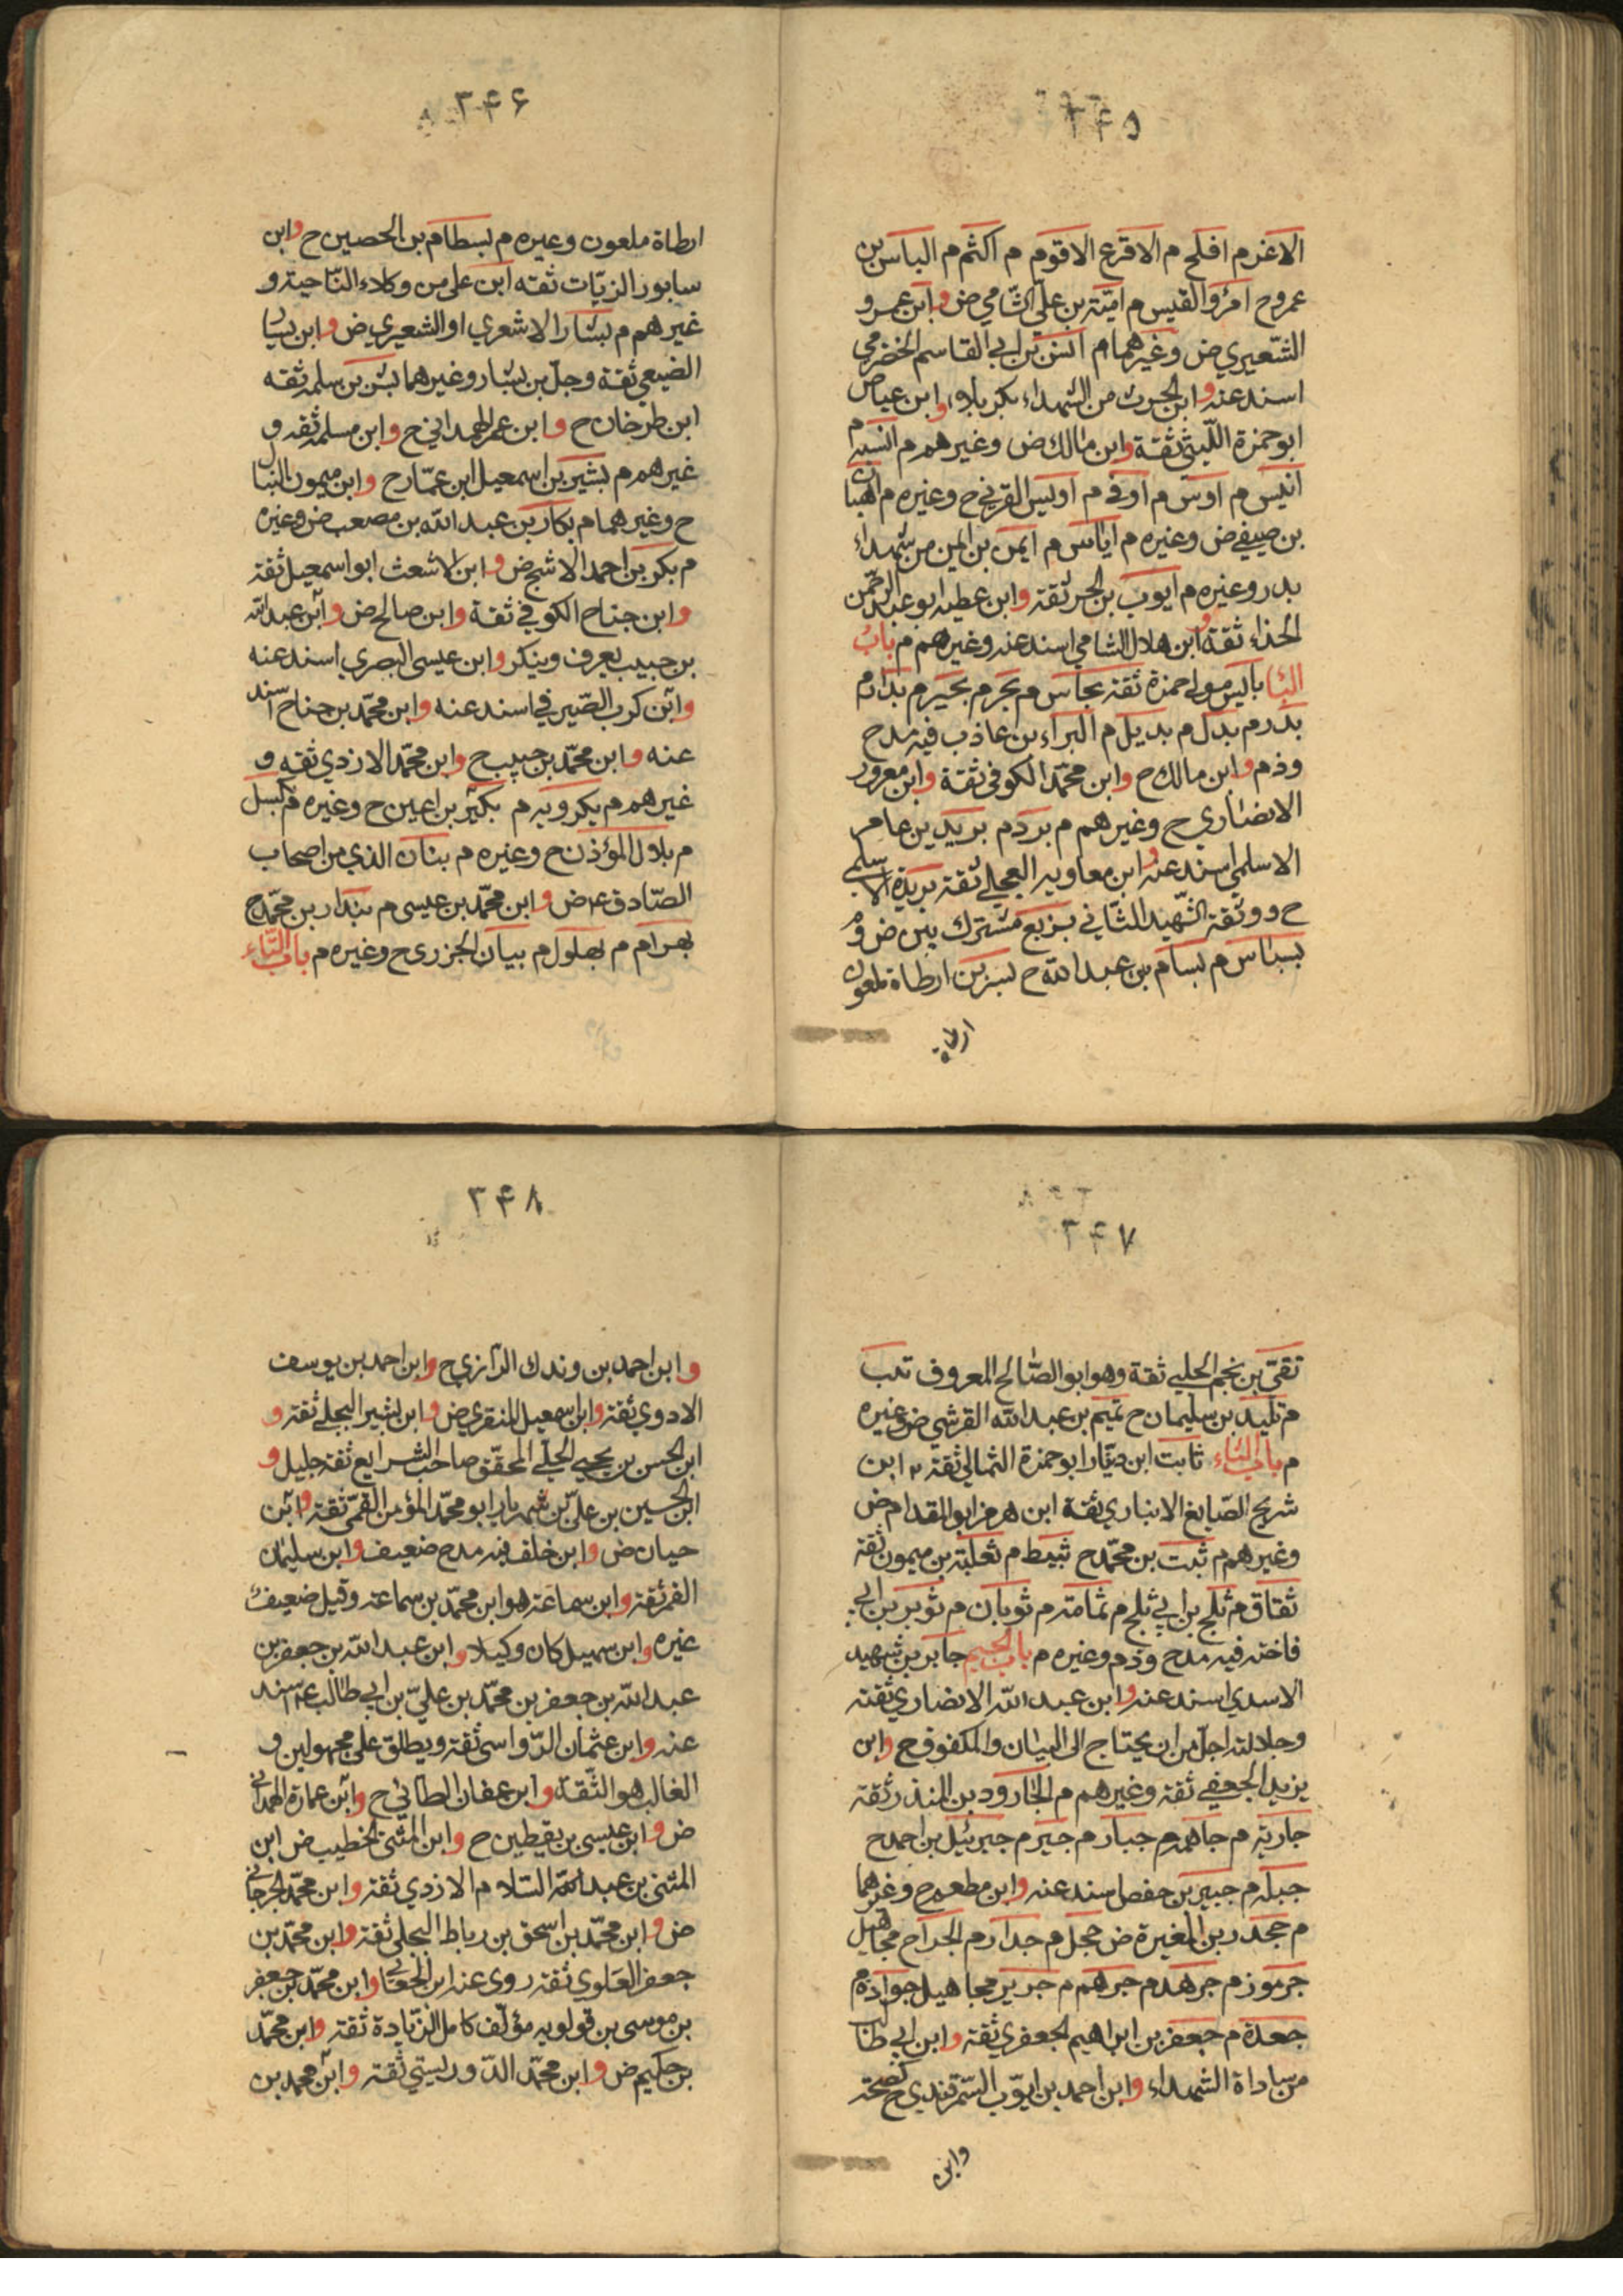 ۲۴۵
الاغر م افلح م الاقرع الاقوم م اكثم م الياس بن
عمرو ح امرؤ القيس م اميّة بن علي الشامي ض وابن عمرو
الشعيري ض وغيرهما م انس بن ابي القاسم الحضرمي
اسند عنه وابن الحرث من الشهداء بكربلاء وابن عياض
ابو حمزة الليثي ثقة وابن مالك ض وغيرهم م انسه م
انيس م اوس م اوفى م اويس القرني ح وغيره م اهبان
بن صيفي ض وغيره م اياس م ايمن بن ايمن من شهداء
بدر وغيره م ايوب بن الحر ثقة وابن عطيه ابو عبد الرحمن
الحذاء ثقة وابن هلال الشامي اسند عنه وغيرهم م باب
الباء باليس مولى حمزة ثقة بجاس م بحر م بحير م بدار م
بدر م بدل م بديل م البراء بن عاذب فيه مدح
وذم وابن مالك ح وابن محمّد الكوفي ثقة وابن معرور
الانصاري ح وغيرهم م برد م بريد بن عامر
الاسلمي اسند عنه وابن معاويه العجلي ثقة بريدة الاسلمي
ح ووثقه الشّهيد الثّاني بزيع مشترك بين ض وم
بسباس م بسام بن عبد الله ح بسر بن ارطاة ملعون
ارطاة
۲۴۶
ارطاة ملعون وغيره م بسطام بن الحصين ح وابن
سابور الزيّات ثقه ابن علي من وكلاء النّاحية و
غيرهم م بشار الاشعري او الشعيري ض وابن يسار
الضبيعي ثقة وجلّ بن بشار وغيرهما بشر بن سلمه ثقه
ابن طرخان ح وابن عمر الهمداني ح وابن مسلمه ثقه و
غيرهم م بشير بن اسمعيل ابن عمّار ح وابن ميمون النبال
ح وغيرهما م بكار بن عبد الله بن مصعب ض وغيره
م بكر بن احمد الاشج ض وابن الاشعث ابو اسمعيل ثقة
وابن جناح الكوفي ثقة وابن صالح ض وابن عبد الله
بن حبيب يعرف وينكر وابن عيسى البصري اسند عنه
وابن كرب الصّيرفي اسند عنه وابن محمّد بن جناح اسند
عنه وابن محمّد بن حبيب ح وابن محمّد الازدي ثقه و
غيرهم م بكرويه م بكير بن اعين ح وغيره م بكسل
م بلال المؤذن ح وغيره م بنان الذي من اصحاب
الصّادق ع ض وابن محمّد بن عيسى م بندار بن محمّد ح
بهرام م بهلول م بيان الجزري ح وغيره م باب التّاء
۲۴۷
تقيّ بن نجم الحلبي ثقة وهو ابو الصّالح المعروف تلب
م تليد بن سليمان ح تميم بن عبد الله القرشي ض وغيره
م باب الثاء ثابت ابن دينار ابو حمزة الثمالي ثقة ابن
شريح الصّايغ الانباري ثقة ابن هرمز ابو المقدام ض
وغيرهم م ثبت بن محمّد ح ثبيط م ثعلبة بن ميمون ثقة
ثقاق م ثلج بن ابي ثلج م ثمامة م ثوبان م ثوير بن ابي
فاخته فيه مدح وذم وغيره م باب الجيم جابر بن شهيد
الاسدي اسند عنه وابن عبد الله الانصاري ثقته
وجلالته اجلّ من ان يحتاج الى البيان والمكفوف ح وابن
يزيد الجعفي ثقة وغيرهم م الجارود بن المنذر ثقة
جارية م جاهمه م جبار م جبر م جبرئيل بن احمد ح
جبله م جبير بن حفص اسند عنه وابن مطعم ح وغيرهما
م جحدر بن المغيرة ض جحل م جدار م الجراح مجاهيل
جرموز م جرهد م جرهم م جرير مجاهيل جوادة م
جعدة م جعفر بن ابراهيم الجعفري ثقة وابن ابي طالب
من ساداة الشهداء وابن احمد بن ايوّب السّمرقندي ح
وابن
۲۴۸
وابن احمد بن وندك الرّازي ح وابن احمد بن يوسف
الاودي ثقة وابن اسمعيل المنقري ض وابن بشير البجلي ثقة و
ابن الحسن بن يحيى الحلّي المحقّق صاحب الشرايع ثقة جليل و
ابن الحسين بن عليّ بن شهريار ابو محمّد المؤمن القمّي ثقة وابن
حيان ض وابن خلف فيه مدح ضعيف وابن سليمان
القمي ثقة وابن سماعة هو ابن محمّد بن سماعة وقيل ضعيف
غيره وابن سهيل كان وكيلا وابن عبد الله بن جعفر بن
عبد الله بن جعفر بن محمّد بن عليّ بن ابي طالب ع اسند
عنه وابن عثمان الرّواسي ثقة ويطلق على مجهولين و
الغالب هو الثّقة وابن عفان الطائي ح وابن عمارة الهمداني
ض وابن عيسى بن يقطين ح وابن المثنى الخطيب ض ابن
المثنى بن عبد السّلام الازدي ثقة وابن محمّد الجرجاني
ض وابن محمّد بن اسحق بن رباط البجلي ثقة وابن محمّد بن
جعفر العلوي ثقة روى عنه ابن الجعابي وابن محمّد بن جعفر
بن موسى بن قولويه مؤلّف كامل الزّيادة ثقة وابن محمّد
بن حكيم ض وابن محمّد الدّوريستي ثقة وابن محمد بن